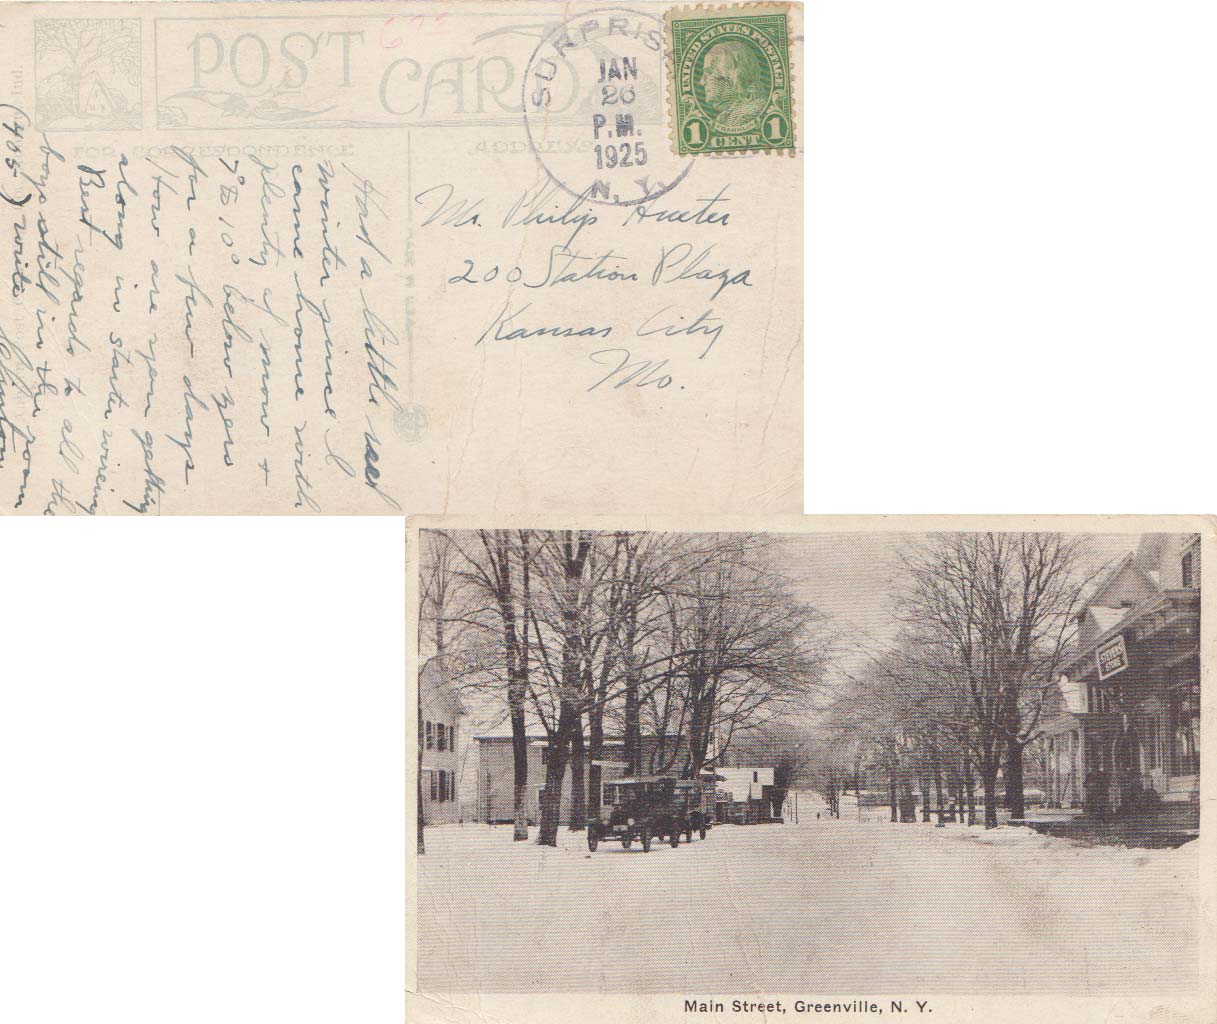 POST CARD
FOR CORRESPONDENCE
ADDRESS
6 75
SURPRISE
JAN
26
P.M.
1925
N. Y.
UNITED STATES POSTAGE
FRANKLIN
1 CENT 1
Mr. Philip Hueter
200 Station Plaza
Kansas City
Mo.
Had a little real
winter since I
came home with
plenty of snow +
7° to 10° below zero
for a few days
How are you getting
along in starter wiring
Best regards to all the
boys still in the room
(405) write Clinton
STEVENS
STORE
Main Street, Greenville, N. Y.